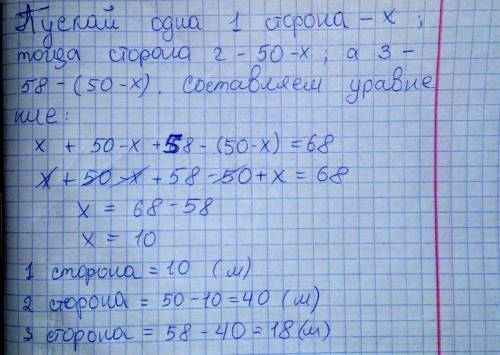 Пускай одна 1 сторона - x ;
тогда сторона 2 - 50 - x ; а 3 -
58 - (50 - x). Составляем уравне
ние:
x + 50 - x + 58 - (50 - x) = 68
x + 50 - x + 58 - 50 + x = 68
x = 68 - 58
x = 10
1 сторона = 10 (м)
2 сторона = 50 - 10 = 40 (м)
3 сторона = 58 - 40 = 18 (м)